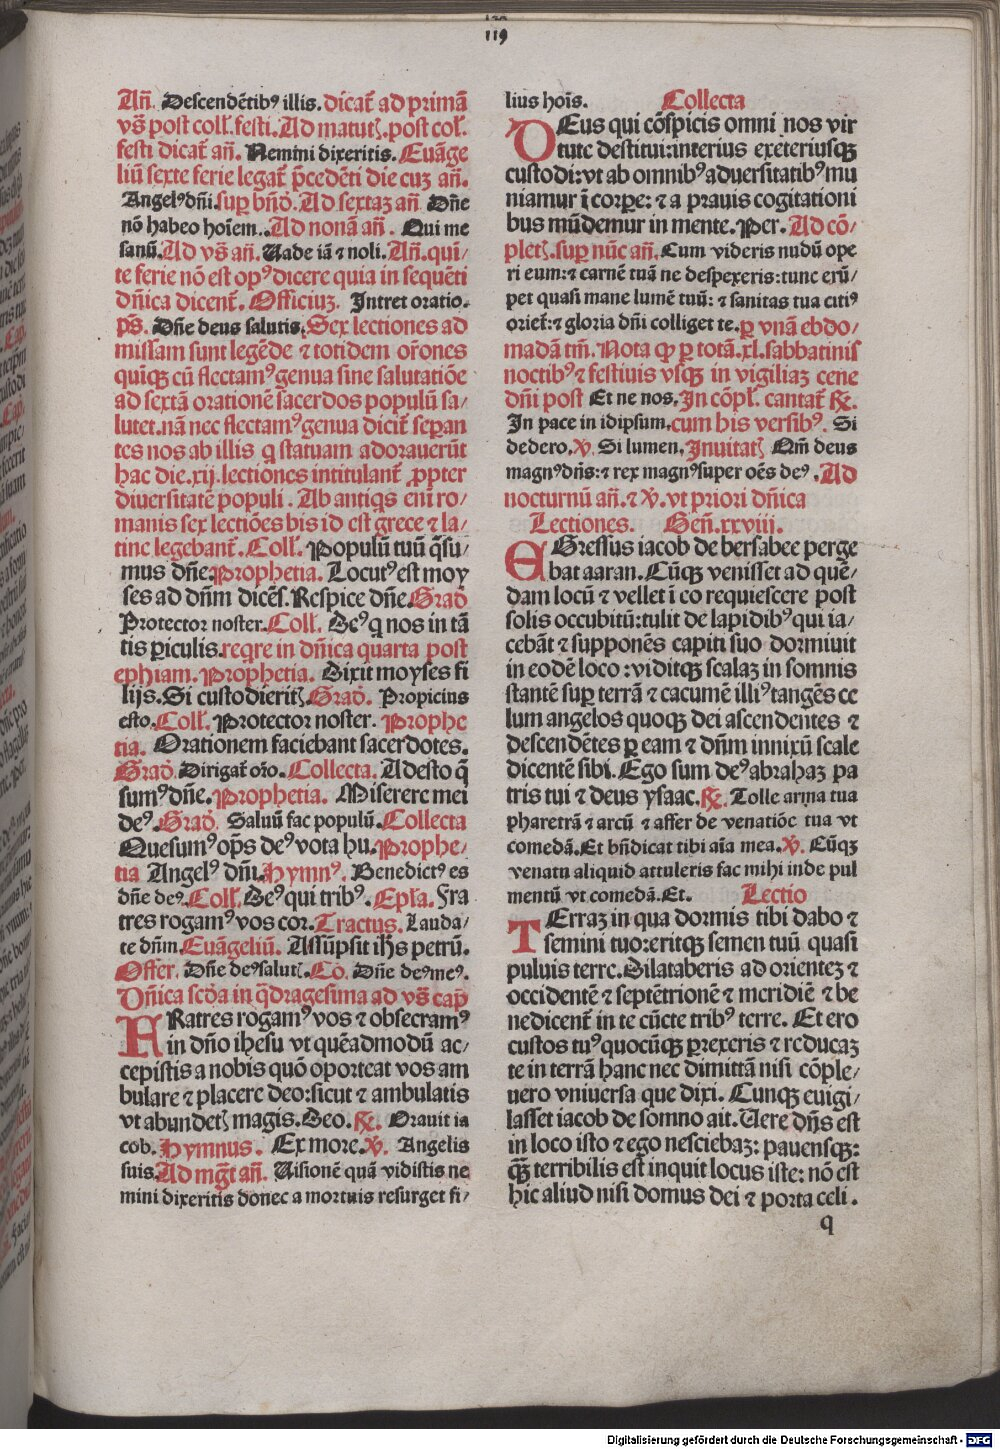 119
Añ. Descendētibꝰ illis. dicat̄ ad primā
vs̄ post coll̄. festi. Ad matutꝭ. post col̄.
festi dicat̄ añ. Nemini dixeritis. Euāge
liū sexte ferie legat̄ p̄cedēti die cuz añ.
Angelꝰ dn̄i. suꝑ bn̄d̄. Ad sextaz añ Dn̄e
nō habeo hoīem.. Ad nonā añ. Qui me
sanū. Ad vs̄ añ. Uade iā ⁊ noli. Añ. qui/
te ferie nō est opꝰ dicere quia in sequēti
dn̄ica dicent̄. Officiuz. Intret oratio.
ps̄. Dn̄e deus salutis. Sex lectiones ad
missam sunt legēde ⁊ totidem or̄ones
quīqꝫ cū flectamꝰ genua sine salutatiōe
ad sextā orationē sacerdos populū sa/
lutet. nā nec flectamꝰ genua dicit̄ seꝑan
tes nos ab illis q statuam adorauerūt
hac die. xij. lectiones intitulant̄ ꝓpter
diuersitatē populi. Ab antiqs eni ro/
manis sex lectiōes bis id est grece ⁊ la/
tine legebant̄. Coll̄. Populū tuū q̄su/
mus dn̄e. Prophetia. Locutꝰ est moy
ses ad dn̄m dicēs. Respice dn̄e. Grad̄
Protector noster. Coll̄. Deꝰ q nos in tā
tis ꝑiculis. reqre in dn̄ica quarta post
ephiam. Prophetia. Dixit moyses fi
lijs. Si custodieritꝭ Grad̄. Propicius
esto. Coll̄. Protector noster. Prophe
tia. Orationem faciebant sacerdotes.
Grad̄. Dirigat̄ or̄o. Collecta. Adesto q̄
sumꝰ dn̄e. Prophetia. Miserere mei
deꝰ. Grad̄. Saluū fac populū. Collecta
Quesumꝰ op̄s deꝰ vota hu. Prophe/
tia Angelꝰ dn̄i. Hymnꝰ. Benedictꝰ es
dn̄e deꝰ. Coll̄. Deꝰ qui tribꝰ. Epl̄a. Fra
tres rogamꝰ vos cor. Tractus. Lauda/
te dn̄m. Euāgeliū. Assūpsit ih̄s petrū.
Offer. Dn̄e deꝰ salutꝭ. Cō. Dn̄e deꝰ meꝰ.
Dn̄ica scd̄a in q̄dragesima ad vs̄ cap̄
FRatres rogamꝰ vos ⁊ obsecramꝰ
in dn̄o ihesu vt quēadmodū ac/
cepistis a nobis quō oporteat vos am
bulare ⁊ placere deo: sicut ⁊ ambulatis
vt abundetꝭ magis. Deo. ℟. Orauit ia
cob. Hymnus. Ex more. ℣. Angelis
suis. Ad mgt̄ añ. Uisionē quā vidistis ne
mini dixeritis donec a mortuis resurget fi/
lius hoīs. Collecta
DEus qui cōspicis omni nos vir
tute destitui: interius exteriusqꝫ
custodi: vt ab omnibꝰ aduersitatibꝰ mu
niamur ī corꝑe: ⁊ a prauis cogitationi
bus mūdemur in mente. Per. Ad cō/
pletꝭ. suꝑ nūc añ. Cum videris nudū ope
ri eum: ⁊ carnē tuā ne despexeris: tunc erū/
pet quasi mane lumē tuū: ⁊ sanitas tua citiꝰ
oriet̄: ⁊ gloria dn̄i colliget te. ꝑ vnā ebdo/
madā tm̄. Nota ꝙ ꝑ totā. xl. sabbatinis
noctibꝰ ⁊ festiuis vsqꝫ in vigiliaz cene
dn̄i post Et ne nos. In cōpl̄. cantat̄ ℟.
In pace in idipsum. cum his versibꝰ. Si
dedero. ℣. Si lumen. Inuitatꝭ Qm̄ deus
magnꝰ dn̄s: ⁊ rex magnꝰ super oēs deꝰ. Ad
nocturnū añ. ⁊ ℣. vt priori dn̄ica
Lectiones. Gen̄. xxviii.
EGressus iacob de bersabee perge
bat aaran. Cūqꝫ venisset ad quē/
dam locū ⁊ vellet ī eo requiescere post
solis occubitū: tulit de lapidibꝰ qui ia/
cebāt ⁊ supponēs capiti suo dormiuit
in eodē loco: viditqꝫ scalaz in somnis
stantē suꝑ terrā ⁊ cacumē illiꝰ tangēs ce
lum angelos quoqꝫ dei ascendentes ⁊
descendētes ꝑ eam ⁊ dn̄m innixū scale
dicentē sibi. Ego sum deꝰ abrahaz pa
tris tui ⁊ deus ysaac. ℟. Tolle arma tua
pharetrā ⁊ arcū ⁊ affer de venatiōe tua vt
comedā. Et bn̄dicat tibi aīa mea. ℣. Cūqꝫ
venatu aliquid attuleris fac mihi inde pul
mentū vt comedā. Et. Lectio
TErraz in qua dormis tibi dabo ⁊
semini tuo: eritqꝫ semen tuū quasi
puluis terre. Dilataberis ad orientez ⁊
occidentē ⁊ septētrionē ⁊ meridiē ⁊ be
nedicent̄ in te cūcte tribꝰ terre. Et ero
custos tuꝰ quocūqꝫ ꝑrexeris ⁊ reducaz
te in terrā hanc nec dimittā nisi cōple/
uero vniuersa que dixi. Cunqꝫ euigi/
lasset iacob de somno ait. Uere dn̄s est
in loco isto ⁊ ego nesciebaz: pauensqꝫ:
qꝫ̄ terribilis est inquit locus iste: nō est
hic aliud nisi domus dei ⁊ porta celi.
q
Digitalisierung gefördert durch die Deutsche Forschungsgemeinschaft - DFG